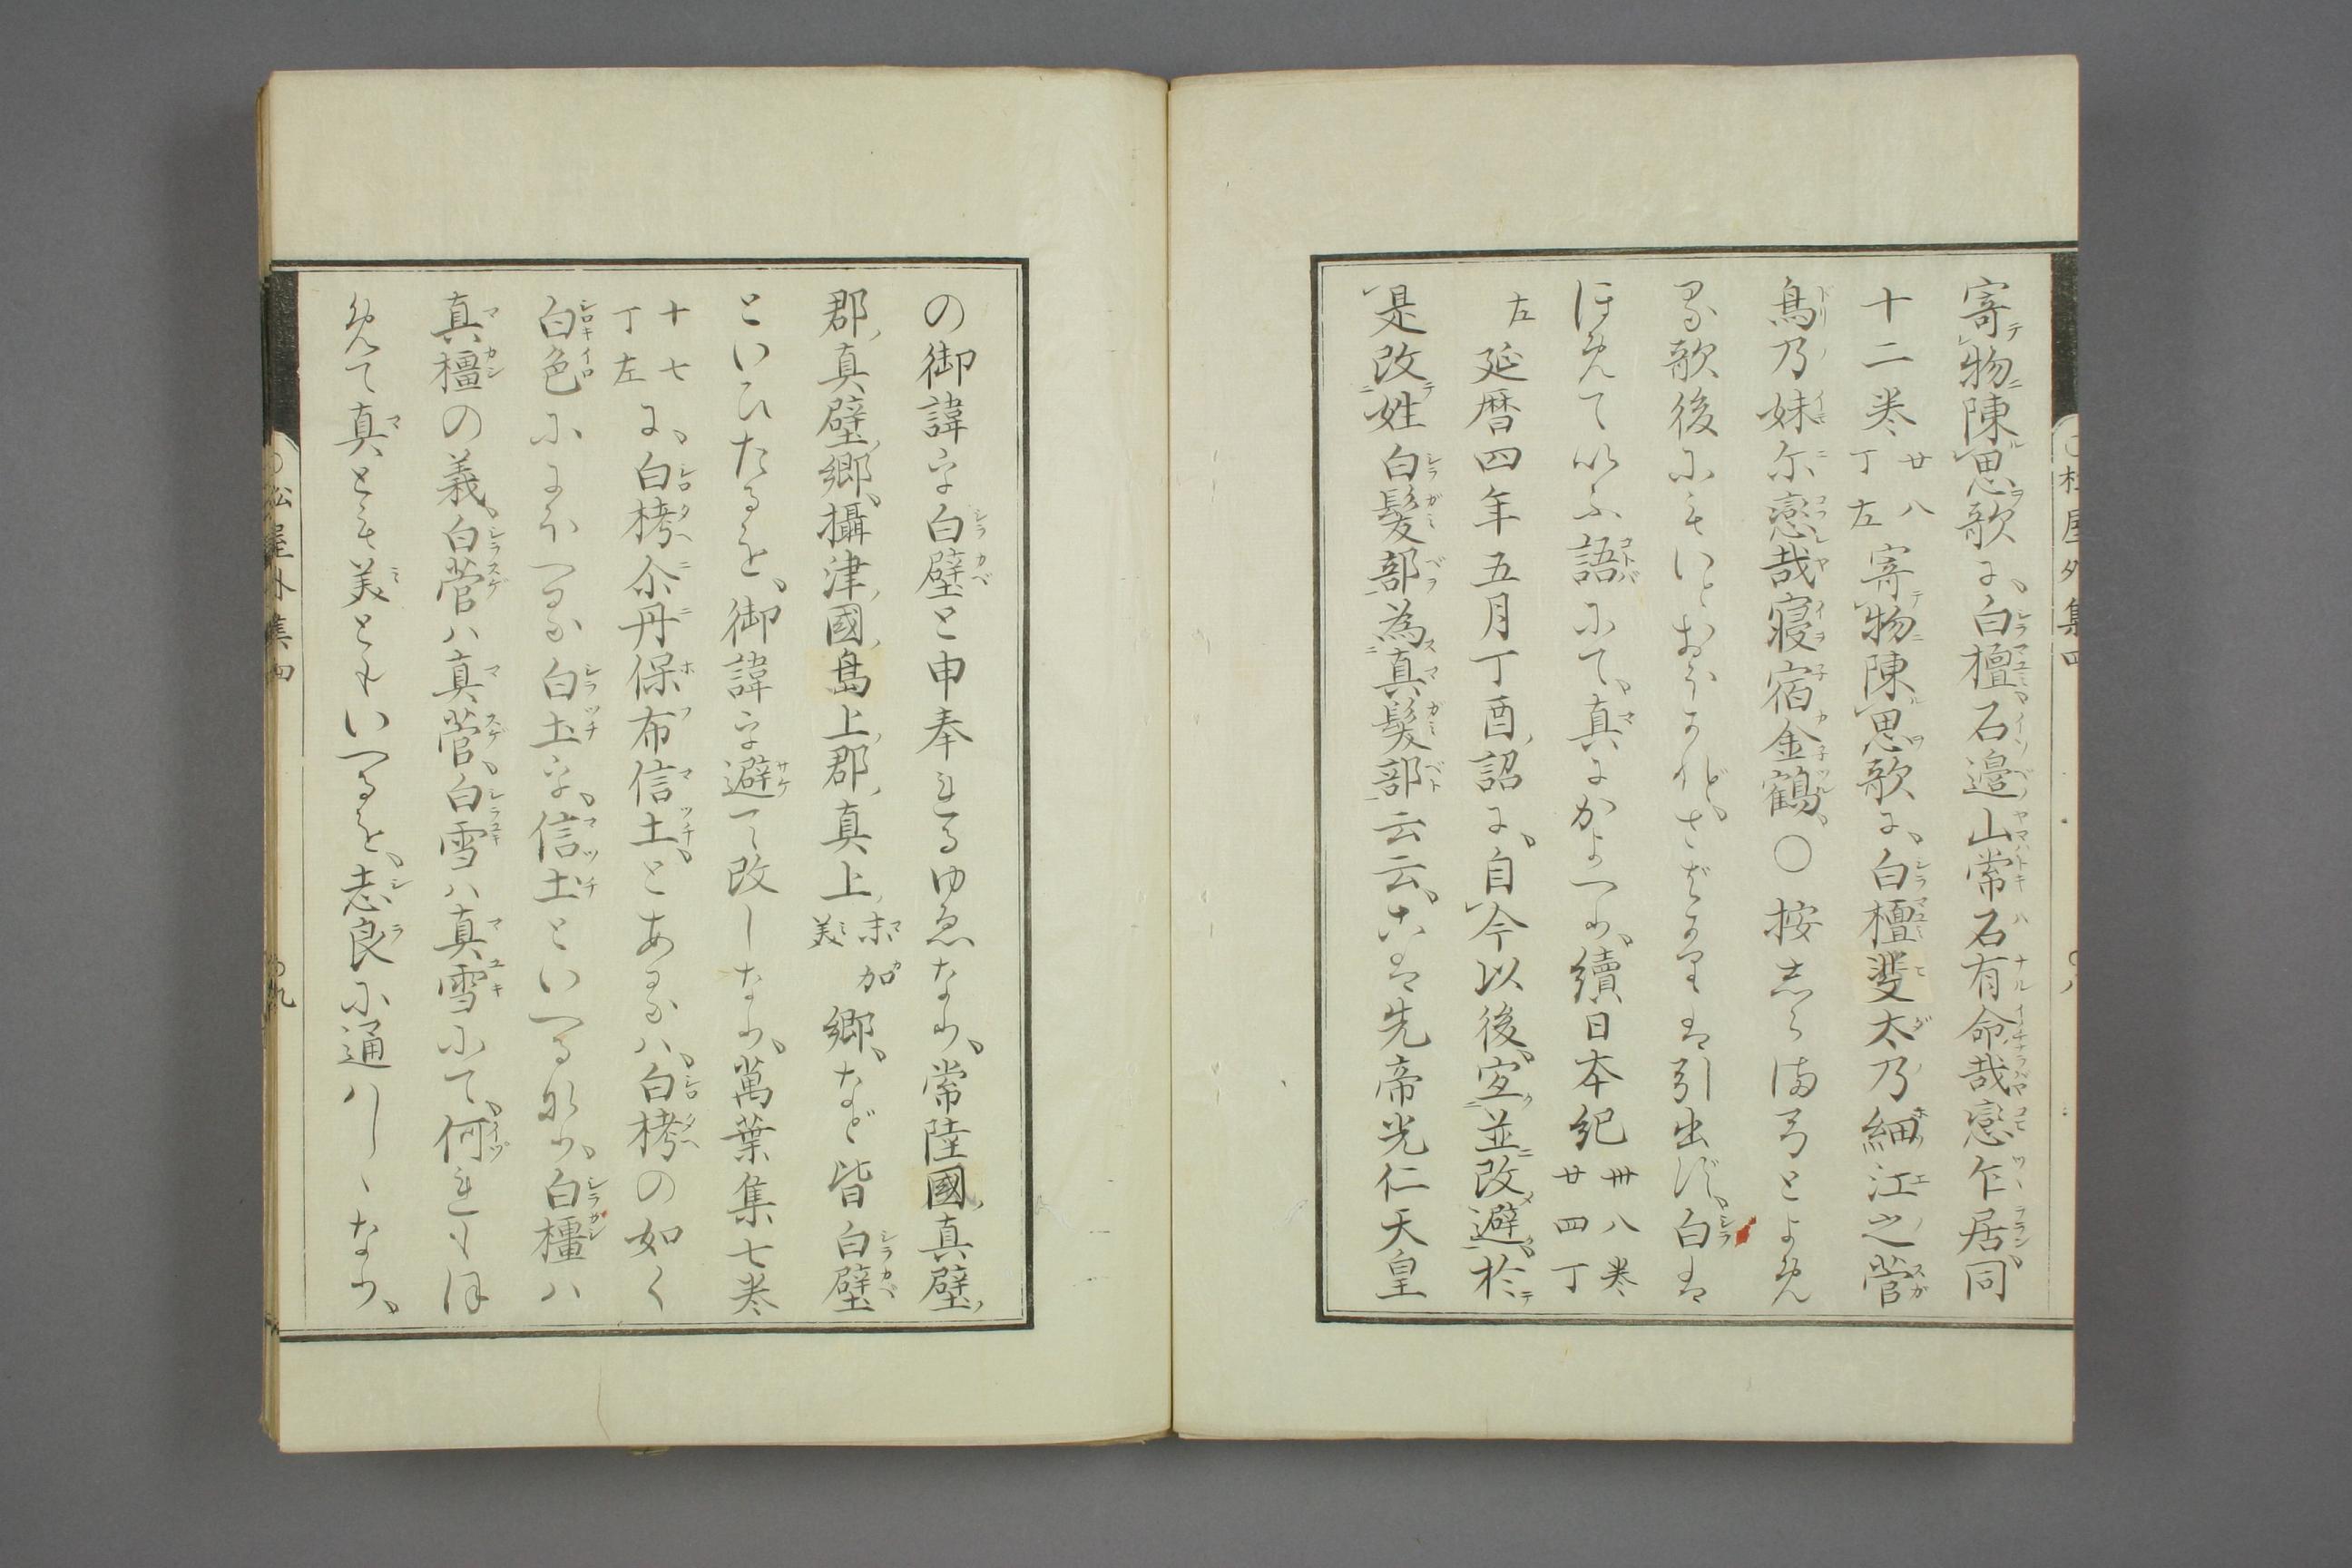 寄物陳思歌に、白檀石邉山常石有命哉戀乍居同
十二巻廿八丁左寄物陳思歌に、白檀斐太乃細江之菅
鳥乃妹尓戀哉寝宿金鶴、〇按志らま弓とよめ
る歌後にもいとおほかれど、さばかりは引出ず、白は
ほめていふ語にて、真にかよへり、續日本紀卅八巻廿四丁
左延暦四年五月丁酉、詔に、自今以後、宜並改避、於
是改姓白髪部為真髪部云云、こは先帝光仁天皇
の御諱を白壁と申奉れるゆゑなり、常陸國真壁
郡真壁郷、攝津國島上郡真上末加美郷、など皆白壁
といひたるを、御諱を避て改しなり、萬葉集七巻
十七丁左に、白栲尒丹保布信土とあるは、白栲の如く
白色ににほへる白土を、信土といへるなり、白橿ハ
真橿の義、白菅ハ真菅、白雪ハ真雪にて、何れもほ
めて真とも美ともいへるを、志良に通ハしゝなり、
〇松屋外集四
〇松屋外集四